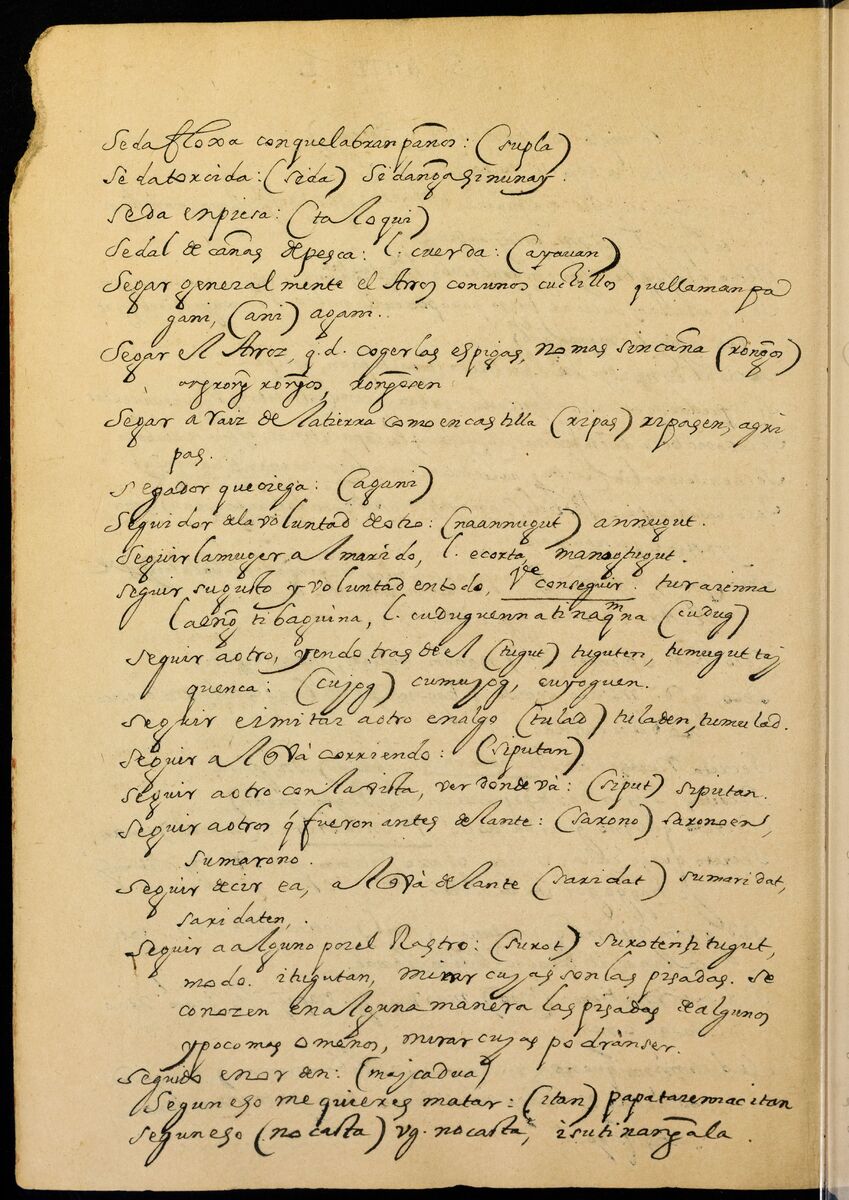 Seda floxa con que labran paños: (supla)
Seda torcida: (seda) sedang̃a sinunay.
Seda en piesa: (tafoqui)
Sedal de cañas de pesca: l. cuerda: (ayauan)
Segar general mente el Arros con unos cuchillos que llaman pa
gani, (ani) agani.
Segar el Arroz, q.d. coger las espigas, no mas sin caña (rong̃os)
rong̃os, rong̃osen
Segar a raiz de la tierra como en castilla (ripas) ripasen, agri
pas.
Segador que ciega: (agani)
Seguidor de la voluntad de otro: (naannugut) annugut.
Seguir la muger al marido, l. escorta, manogtugut.
seguir su gusto y voluntad en todo, Vde conseguir. turarenna
laeng̃ ti baquina, l. cuduguenna ti naqmna (cudug)
seguir a otro, yendo tras de el (tugut) tuguten, tumugut taj
quenca: (cujog) cumujog, cuyoguen.
seguir e imitar a otro en algo (tulad) tuladen, tumulad.
seguir al q̃ và corriendo: (siputan)
seguir a otro con la vista, ver donde và: (siput) siputan.
seguir a otros q̃ fueron antes delante: (sarono) saronoen,
sumarono.
seguir decir ea, al q̃ và delante (saridat) sumaridat,
saridaten,.
seguir a alguno por el Rastro: (surot) suroten ti tugut,
modo. itugutan, mirar cujas son las pisadas. se
conozen en alguna manera las pisadas de algunos
y poco mas o menos, mirar cujas podrànser.
seguido en orden: (majcadua)
Segun eso me quieres matar: (itan) papatayennac itan
segun eso (no casta) vg. no casta, isu ti nang̃ala.